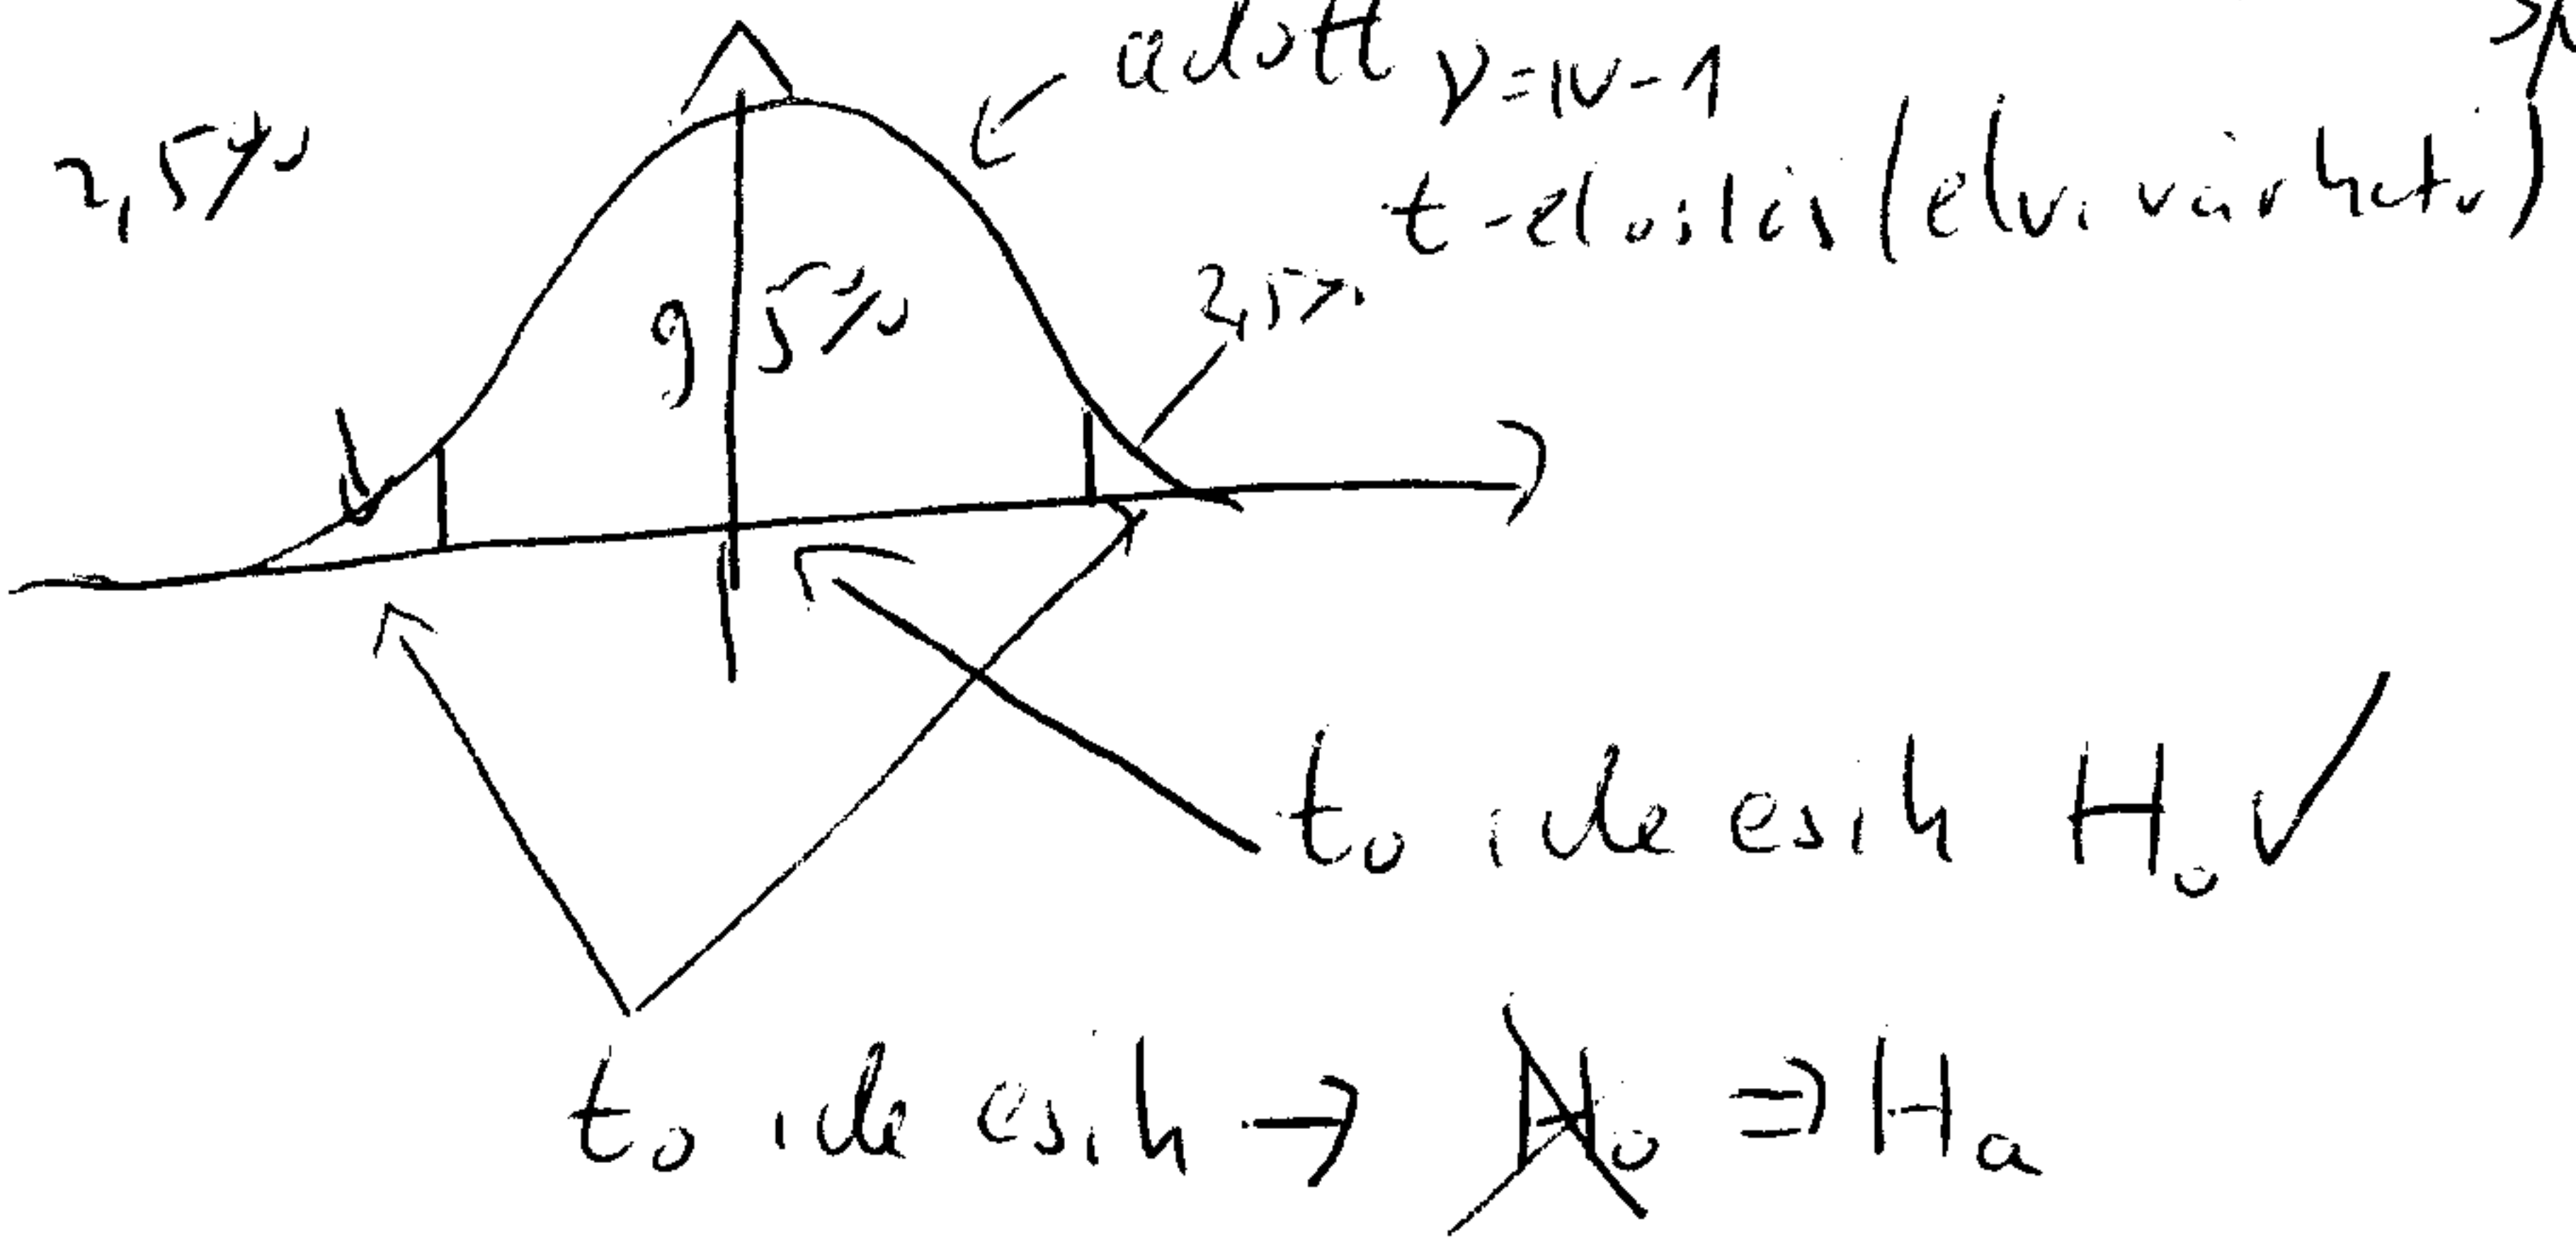 adott ν=N-1
2,5%
t-eloslás (elvi várható)
95%
2,5%
t₀ ide esik H₀ ✓
t₀ ide esik → H₀ ⇒ Hₐ